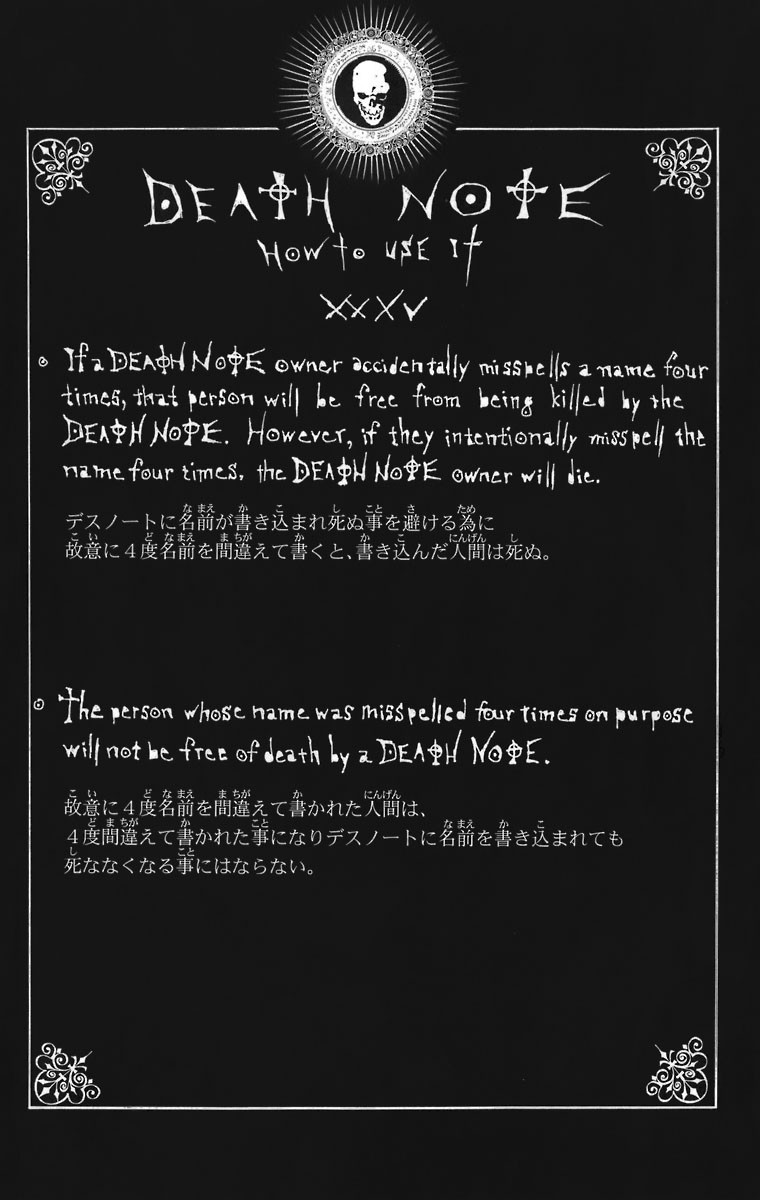 DEATH NOTE
HOW to USE It
XXXV
If a DEATH NOTE owner accidentally misspells a name four
times, that person will be free from being killed by the
DEATH NOTE. However, if they intentionally misspell the
name four times, the DEATH NOTE owner will die.
デスノートに名前が書き込まれ死ぬ事を避ける為に
故意に4度名前を間違えて書くと、書き込んだ人間は死ぬ。
The person whose name was misspelled four times on purpose
will not be free of death by a DEATH NOTE.
故意に4度名前を間違えて書かれた人間は、
4度間違えて書かれた事になりデスノートに名前を書き込まれても
死ななくなる事にはならない。